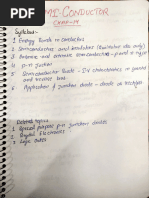 SEMI-CONDUCTOR
CHAP-14
Syllabus-
1 Energy Bands in conductors
2 Semiconductors and insulators (qualitative idea only)
3 Intrinsic and extrinsic semiconductors - p and n type
4 p-n junction
5 Semiconductor diode - I-V characteristics in forward
and reverse bias
6 Application of junction diode - diode as rectifier
Deleted topics
1 Special purpose p-n junction diodes
2 Digital Electronics
3 Logic Gates